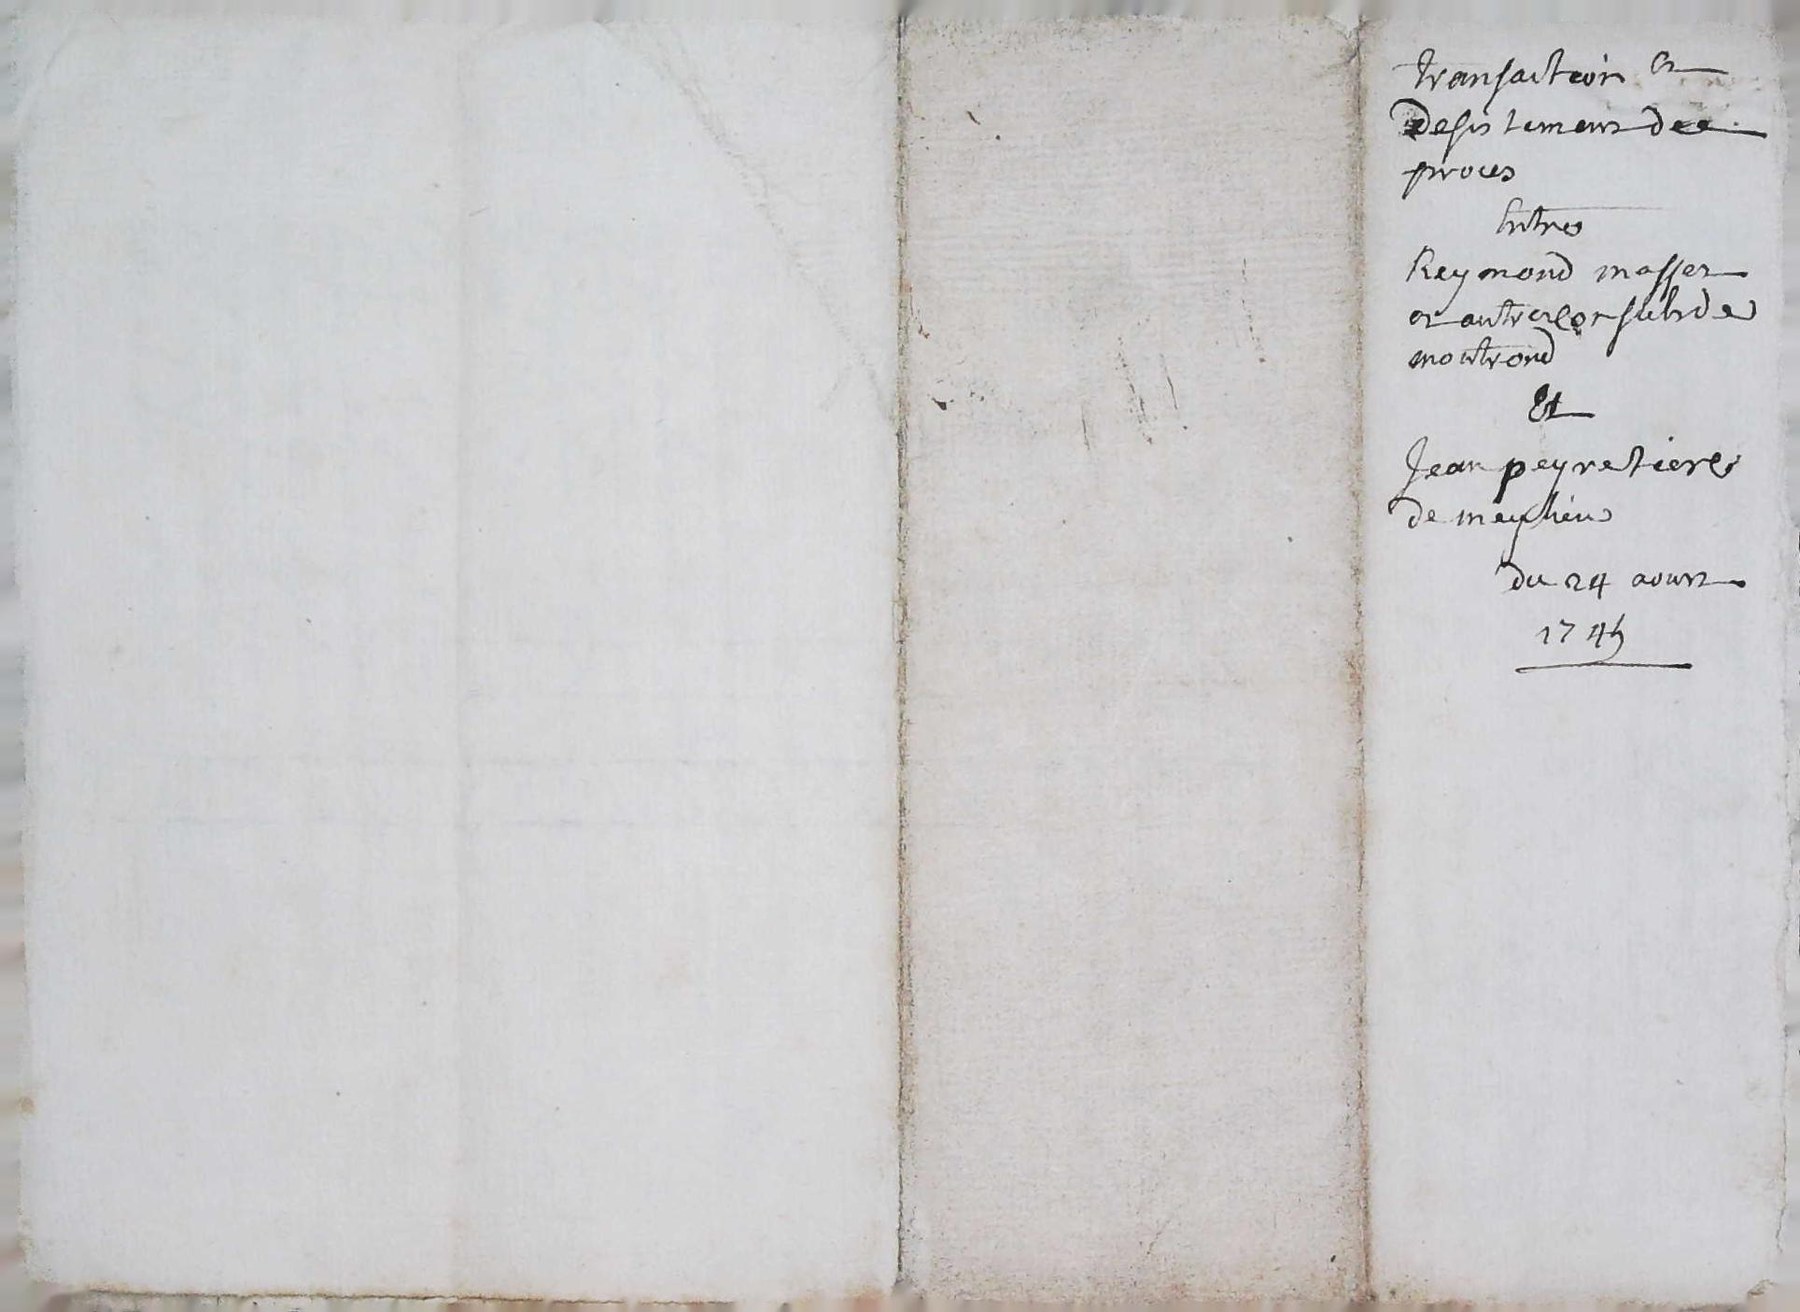 transaction et
Desistement de
proces
Entres
Reymond masset
et autre consuls de
montrond
Et
Jean peyretiere
de meylieu
du 24 aoust
1745